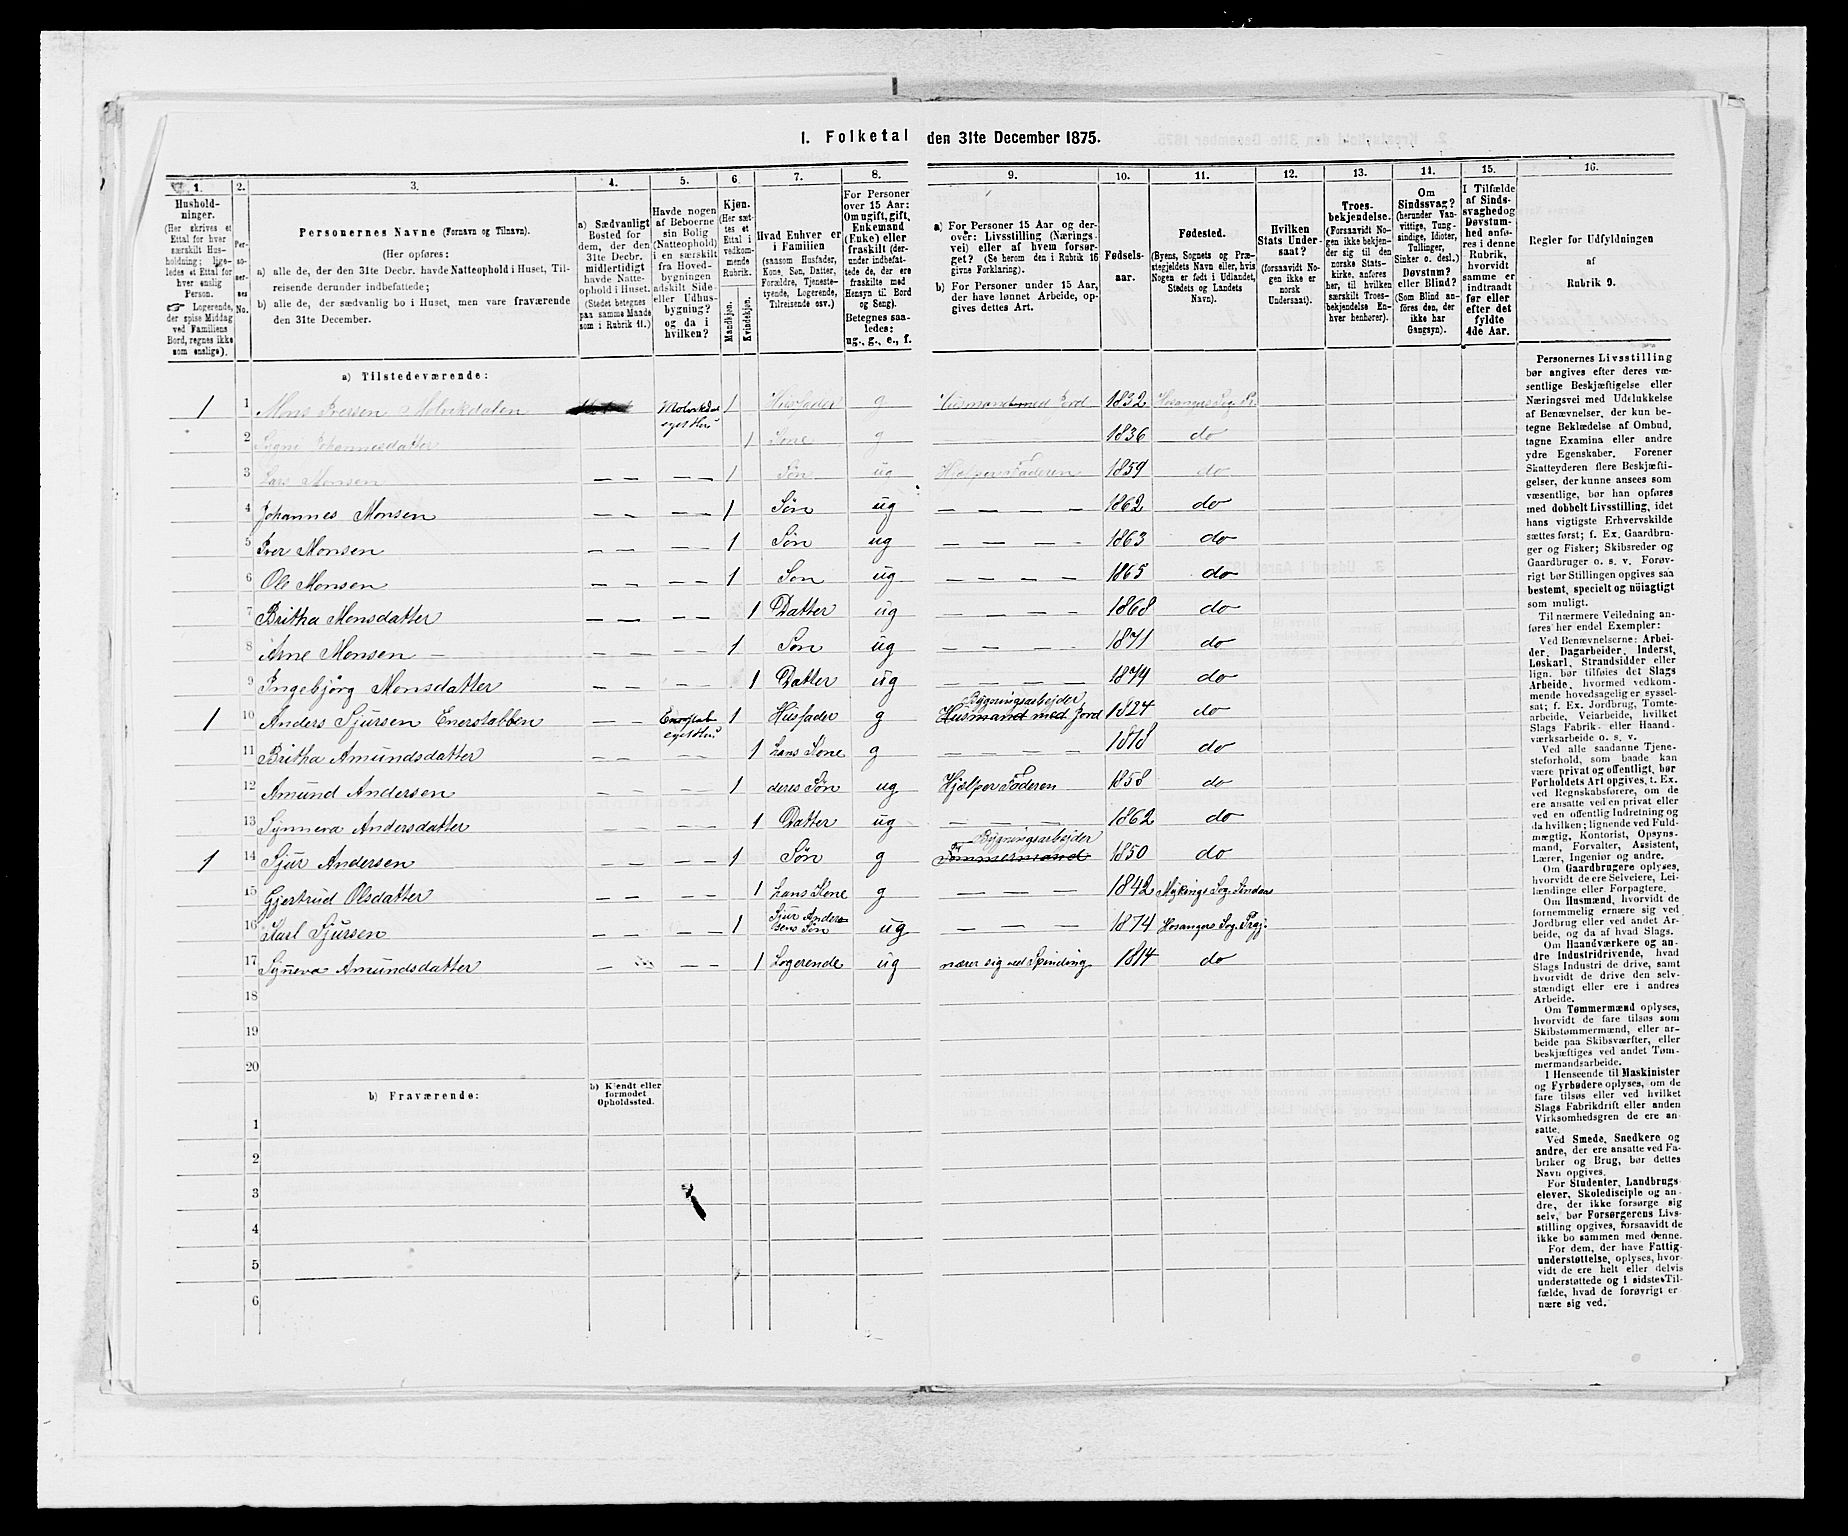 1. Folketal den 31te December 1875.
1. 2. 3. 4. 5. 6. 7. 8. 9. 10. 11. 12. 13. 14. 15. 16.
Hushold-
ninger.
(Her skrives et
Ettal for hver
særskilt Hus-
holdning; lige-
ledes et Ettal for
hver enslig
Person.
☞ Logerende,
der spise Middag
ved Familiens
Bord, regnes ikke
som enslige).
Per-
so-
ner-
nes
No.
Personernes Navne (Fornavn og Tilnavn).
(Her opføres:
a) alle de, der den 31te Decbr. havde Natteophold i Huset, Til-
reisende derunder indbefattede;
b) alle de, der sædvanlig bo i Huset, men vare fraværende
den 31te December.
a) Sædvanligt
Bosted for
dem, der den
31te Decbr.
midlertidigt
havde Natte-
ophold i Huset.
(Stedet betegnes
paa samme Maade
som i Rubrik 11.)
Havde nogen
af Beboerne
sin Bolig
(Natteophold)
i en særskilt
fra Hoved-
bygningen
adskilt Side-
eller Udhus-
bygning?
og da i
hvilken?
Kjøn.
(Her sæt-
tes et
Ettal i
vedkom-
mende
Rubrik.
Mandkjøn.
Kvindekjøn.
Hvad Enhver er
i Familien
(saasom Husfader,
Kone, Søn, Datter,
Forældre, Tjeneste-
tyende, Logerende,
Tilreisende osv.)
For Personer
over 15 Aar:
Om ugift, gift,
Enkemand
(Enke) eller
fraskilt (der-
under indbefat-
tede de, der ere
fraskilte med
Hensyn til Bord
og Seng).
Betegnes saa-
ledes:
ug., g., e., f.
a) For Personer 15 Aar og der-
over: Livsstilling (Nærings-
vei) eller af hvem forsør-
get? (Se herom den i Rubrik 16
givne Forklaring).
b) For Personer under 15 Aar,
der have lønnet Arbeide, op-
gives dettes Art.
Fødsels-
aar.
Fødested.
(Byens, Sognets og Præ-
stegjeldets Navn eller, hvis
Nogen er født i Udlandet,
Stedets og Landets
Navn).
Hvilken
Stats Under-
saat?
(forsaavidt No-
gen ikke er
norsk
Undersaat).
Troes-
bekjendelse.
(Forsaavidt No-
gen ikke bekjen-
der sig til den
norske Stats-
kirke, anføres
her, til hvilken
særskilt Troes-
bekjendelse En-
hver henhører).
Om
Sindssvag?
(herunder Van-
vittige, Tung-
sindige, Idioter,
Tullinger,
Sinker o. desl.)
Døvstum?
eller Blind?
(Som Blind an-
føres den, der
ikke har
Gangsyn).
I Tilfælde
af Sinds-
svaghedog
Døvstum-
hed anfø-
res i denne
Rubrik,
hvorvidt
samme er
indtraadt
før eller
efter det
fyldte
4de Aar.
Regler for Udfyldningen
af
Rubrik 9.
a) Tilstedeværende:
1 1 Mons Iversen Molvikdalen Molvikdal eget Hus 1 Husfader g Husmand med Jord 1832 Hosangers Sog. Pr.
2 Johannesdatter 1 Kone g 1836 do
3 Lars Monsen 1 Søn ug Hjælper Faderen 1859 do
4 Johannes Monsen 1 Søn ug 1862 do
5 Iver Monsen 1 Søn ug 1863 do
6 Ole Monsen 1 Søn ug 1865 do
7 Britha Monsdatter 1 Datter ug 1868 do
8 Arne Monsen 1 Søn ug 1871 do
9 Ingebjörg Monsdatter 1 Datter ug 1874 do
1 10 Anders Sjursen Enerstabben eget Hus 1 Husfader g Bygningsarbejder Husmand med Jord 1824 do
11 Britha Amundsdatter 1 hans Kone g 1818 do
12 Amund Andersen 1 deres Søn ug Hjælper Faderen 1858 do
13 Synneva Andersdatter 1 Datter ug 1862 do
1 14 Sjur Andersen 1 Søn g Bygningsarbejder Tømmermand 1850 do
15 Gjertrud Olsdatter 1 hans Kone g 1842 Mykings Sog. Lindaas
16 Karl Sjursen 1 Sjur Ander-sens Søn ug 1874 Hosangers Sog. Prgj.
17 Syneva Amundsdatter 1 Logerende ug nærer sig ved Spinding 1814 do
18
19
20
b) Fraværende:
b) Kjendt eller
formodet
Opholdssted.
1
2
3
4
5
6
Personernes Livsstilling
bør angives efter deres væ-
sentlige Beskjæftigelse eller
Næringsvei med Udelukkelse
af Benævnelser, der kun be-
tegne Beklædelse af Ombud,
tagne Examina eller andre
ydre Egenskaber. Forener
Skatteyderen flere Beskjæfti-
gelser, der kunne ansees som
væsentlige, bør han opføres
med dobbelt Livsstilling, idet
hans vigtigste Erhvervskilde
sættes først; f. Ex. Gaardbru-
ger og Fisker; Skibsreder og
Gaardbruger o. s. v. Forøv-
rigt bør Stillingen opgives saa
bestemt, specielt og nöiagtigt
som muligt.
Til nærmere Veiledning an-
føres her endel Exempler:
Ved Benævnelserne: Arbei-
der, Dagarbeider, Inderst,
Løskarl, Strandsidder eller
lign. bør tilføies det Slags
Arbeide, hvormed vedkom-
mende hovedsagelig er syssel-
sat; f. Ex. Jordbrug, Tomte-
arbeide, Veiarbeide, hvilket
Slags Fabrik- eller Haand-
værksarbeide o. s. v.
Ved alle saadanne Tjene-
steforhold, som baade kan
være privat og offentligt, bør
Forholdets Art opgives, t. Ex.
ved Regnskabsførere, om de
ere ansatte ved en privat eller
ved en offentlig Indretning og
da hvilken; lignende ved Fuld-
mægtig, Kontorist, Opsyns-
mand, Forvalter, Assistent,
Lærer, Ingeniør og andre.
Om Gaardbrugere oplyses,
hvorvidt de ere Selveiere, Lei-
lændinge eller Forpagtere.
Om Husmænd, hvorvidt de
fornemmelig ernære sig ved
Jordbrug eller ved andet Ar-
beide, og da af hvad Slags.
Om Haandværkere og an-
dre Industridrivende, hvad
Slags Industri de drive, samt
hvorvidt de drive den selv-
stændigt eller ere i andres
Arbeide.
Om Tømmermænd oplyses,
hvorvidt de fare tilsøs som
Skibstømmermænd, eller ar-
beide paa Skibsværfter, eller
beskjæftiges ved andet Tøm-
mermandsarbeide.
I Henseende til Maskinister
og Fyrbødere oplyses, om de
fare tilsøs eller ved hvilket
Slags Fabrikdrift eller anden
Virksomhedsgren de ere an-
satte.
Ved Smede, Snedkere og
andre, der ere ansatte ved Fa-
briker og Brug, bør dettes
Navn opgives.
For Studenter, Landbrugs-
elever, Skoledisciple og an-
dre, der ikke forsørge sig
selv, bør Forsørgerens Livs-
stilling opgives, forsaavidt de
ikke bo sammen med denne.
For dem, der have Fattig-
understøttelse, oplyses, hvor-
vidt de ere helt eller delvis
understøttede og i sidste Til-
fælde, hvad de forøvrigt er-
nære sig ved.